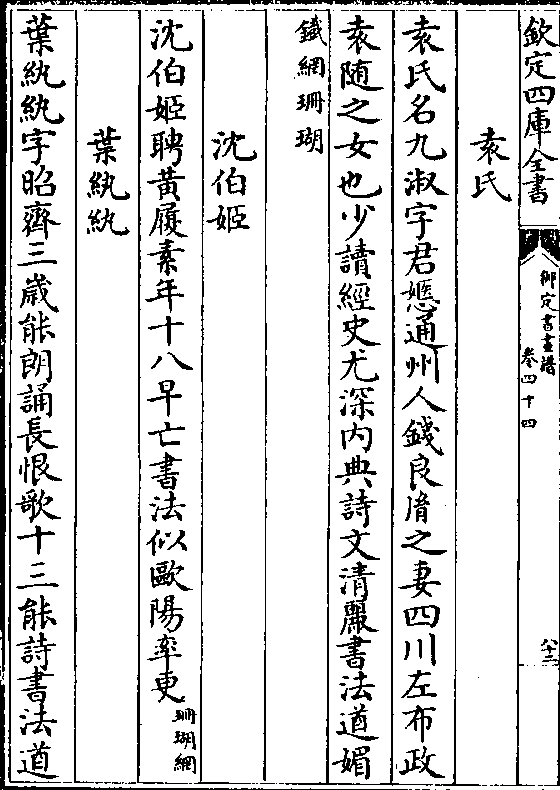 欽定四庫全書
御定書畫譜
卷四十四
八十三
袁氏
袁氏名九淑字君嬺通州人錢良胤之妻四川左布政
袁随之女也少讀經史尤深内典詩文清麗書法遒媚
鐵網珊瑚
沈伯姬
沈伯姬聘黄履素年十八早亡書法似歐陽率更
珊瑚網
葉紈紈
葉紈紈字昭齊三歲能朗誦長恨歌十三能詩書法遒